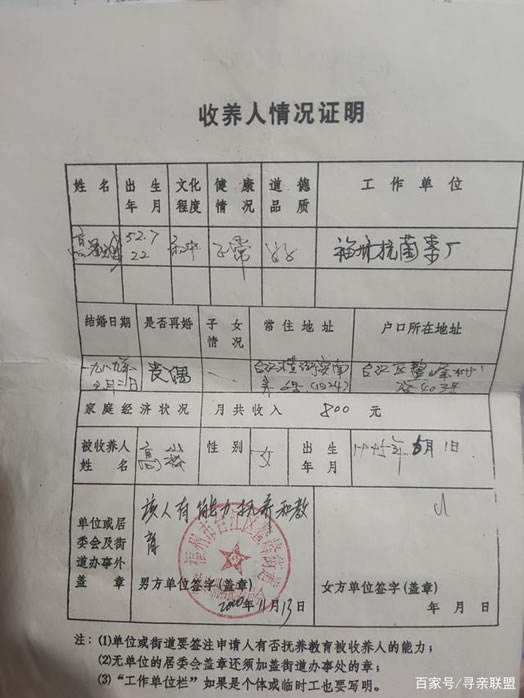 收养人情况证明
姓名 出生年月 文化程度 健康情况 道德品质 工作单位
高 52.7 22 初中 正常 好 福州抗菌素厂
结婚日期 是否再婚 子女情况 常住地址 户口所在地址
一九八九年 丧偶 一 台江 台江区鳌峰
家庭经济状况 月共收入 800 元
被收养人姓名 高 性别 女 出生年月 年 月1日
单位或居委会及街道办事外盖章
该人有能力抚养和教
育
男方单位签字(盖章) 女方单位签字(盖章)
2000年11月13日 年 月 日
注：(1)单位或街道要签注申请人有否抚养教育被收养人的能力；
(2)无单位的居委会盖章还须加盖街道办事处的章；
(3)“工作单位栏”如果是个体或临时工也要写明。
百家号/寻亲联盟